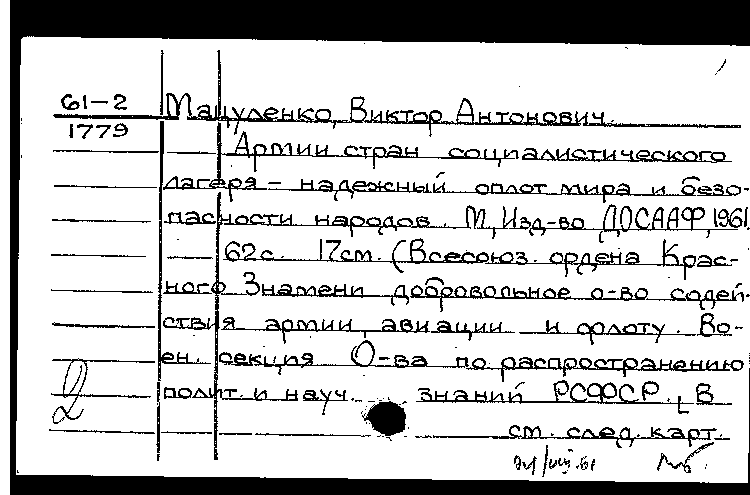 61-2
1779
Мацуленко, Виктор Антонович.
Армии стран социалистического
лагеря – надежный оплот мира и безо-
пасности народов. М, Изд-во ДОСААФ, 1961
62с. 17см. (Всесоюз. ордена Крас-
ного Знамени добровольное о-во содей-
ствия армии, авиации и флоту. Во-
ен. секция О-ва по распространению
полит. и науч. знаний РСФСР. В
см. след. карт.
2